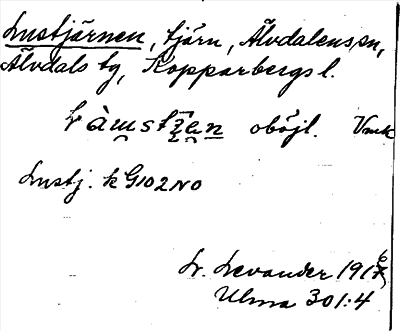 Lustjärnen, tjärn, Älvdalens sn,
Älvdals tg, Kopparbergs l.
oböjl. Vmk
Lustj. k G102NO
L. Levander 1917
Ulma 301:4